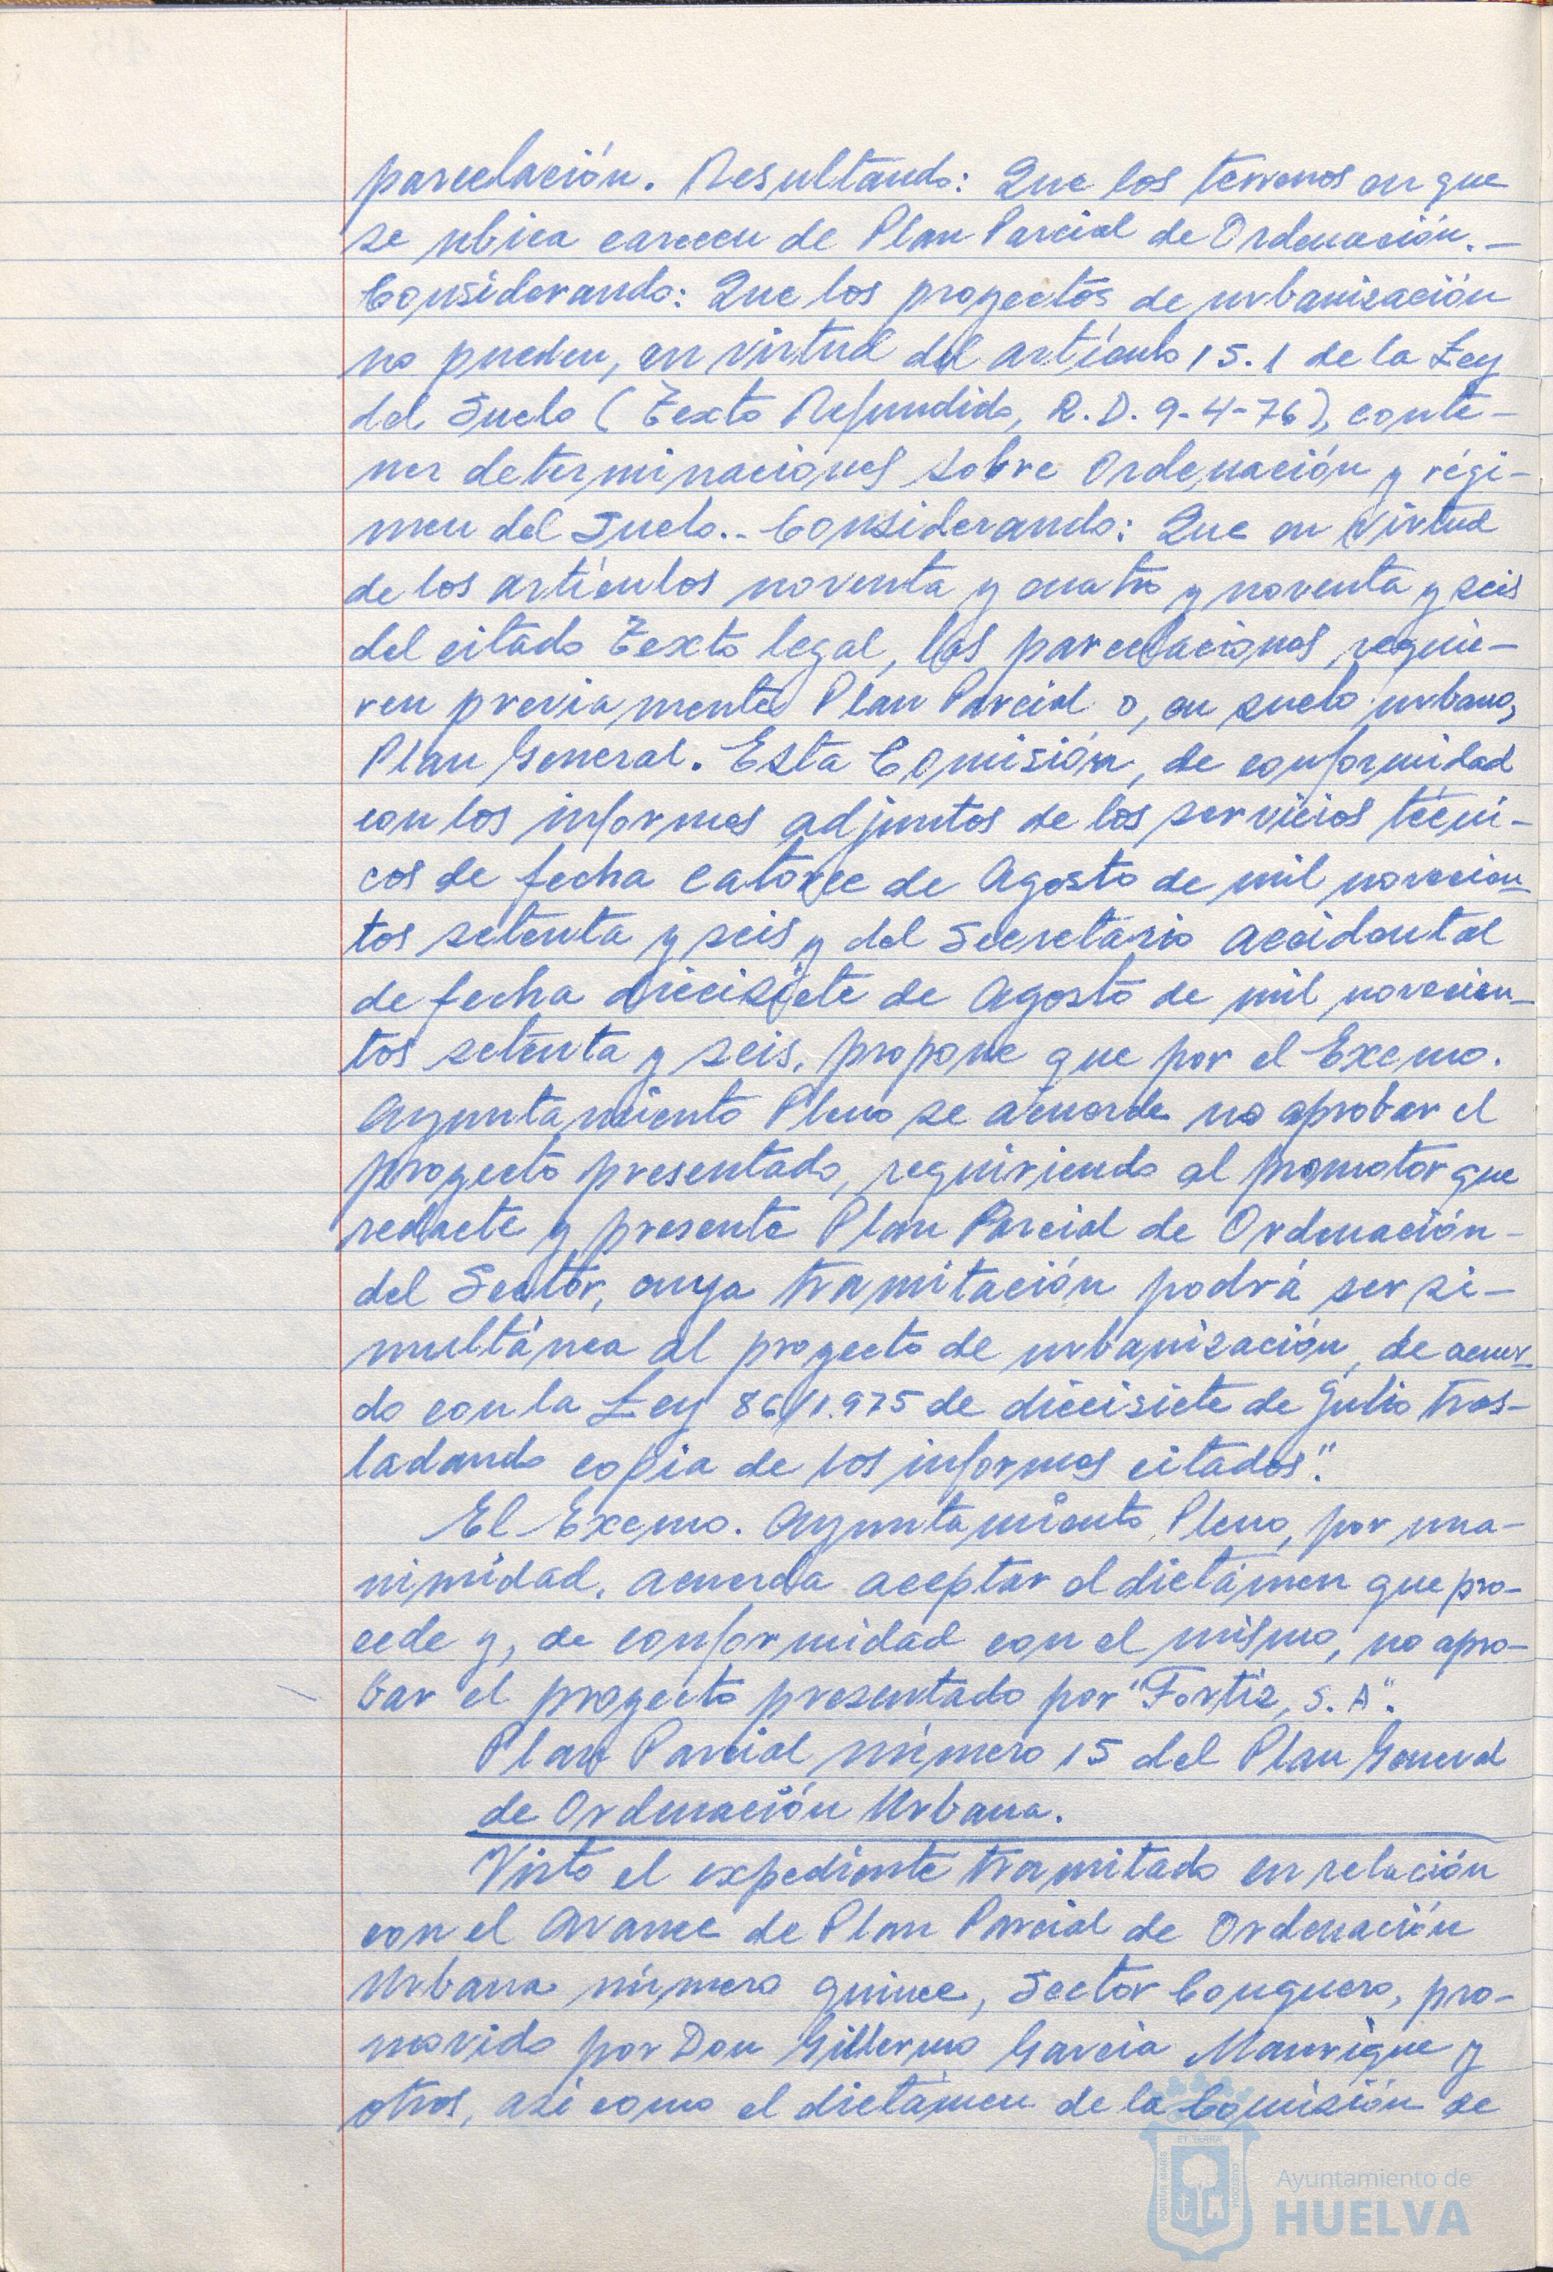 parcelación. Resultando: Que los terrenos en que
se ubica carecen de Plan Parcial de Ordenación.-
Considerando: Que los proyectos de urbanización
no pueden, en virtud del artículo 15.1 de la Ley
del Suelo (Texto Refundido, R.D. 9-4-76), conte-
ner determinaciones sobre Ordenación y régi-
men del Suelo.- Considerando: Que en virtud
de los artículos noventa y cuatro y noventa y seis
del citado Texto legal, las parcelaciones requie-
ren previamente Plan Parcial o, en suelo urbano,
Plan General. Esta Comisión, de conformidad
con los informes adjuntos de los servicios técni-
cos de fecha catorce de Agosto de mil novecien-
tos setenta y seis y del Secretario accidental
de fecha diecisiete de Agosto de mil novecien-
tos setenta y seis, propone que por el Excmo.
Ayuntamiento Pleno se acuerde no aprobar el
proyecto presentado, requiriendo al promotor que
redacte y presente Plan Parcial de Ordenación-
del Sector, cuya tramitación podrá ser si-
multánea al proyecto de urbanización, de acuer-
do con la Ley 86/1.975 de diecisiete de Julio tras-
ladando copia de los informes citados".
El Excmo. Ayuntamiento Pleno, por una-
nimidad, acuerda aceptar el dictámen que pre-
cede y, de conformidad con el mismo, no apro-
bar el proyecto presentado por "Fortiz, S.A".
Plan Parcial número 15 del Plan General
de Ordenación Urbana.
Visto el expediente tramitado en relación
con el Avance de Plan Parcial de Ordenación
Urbana número quince, Sector Conquero, pro-
movido por Don Gillermo García Manrique y
otros, asi como el dictámen de la Comisión de
PORTUS MARIS ET TERRAE CUSTODIA
Ayuntamiento de
HUELVA